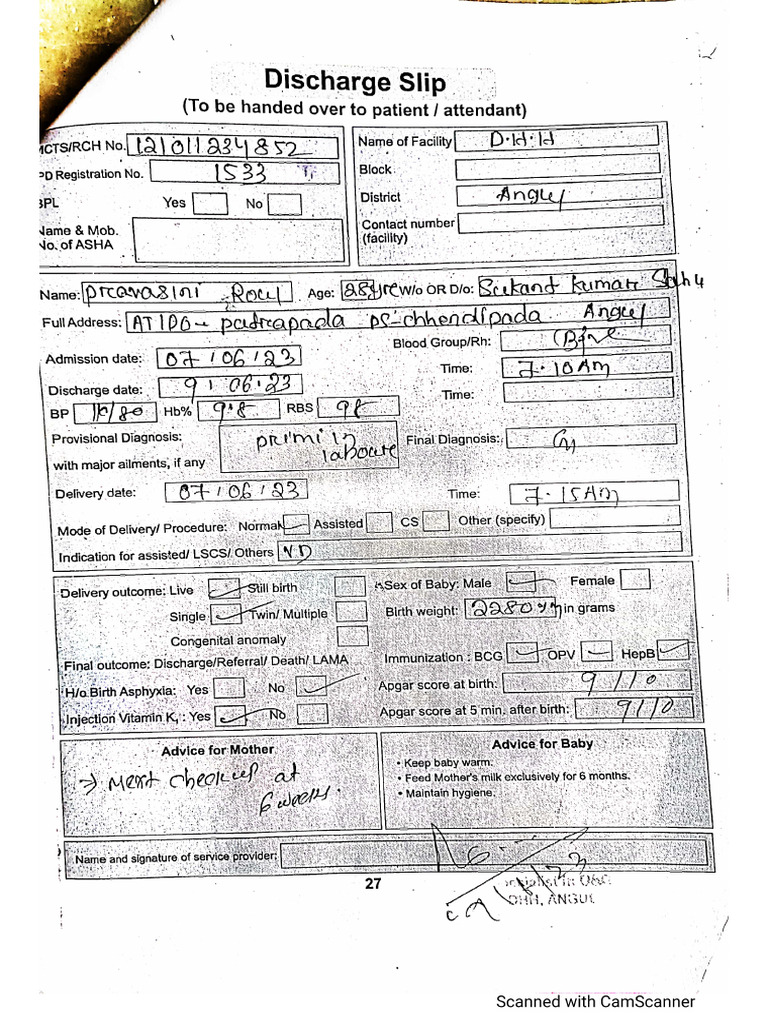 Discharge Slip
(To be handed over to patient / attendant)
MCTS/RCH No. 121011234852
PD Registration No. 1533
BPL Yes No
Name & Mob. No. of ASHA
Name of Facility D.H.H
Block
District Angul
Contact number (facility)
Name: Pravasini Rout Age: 28yrs W/o OR D/o: Srikant Kumar Sahu
Full Address: AT/PO- patrapada PS-chhendipada Angul
Blood Group/Rh:
Admission date: 07/06/23 Time: 7.10Am
Discharge date: 9/06.23 Time:
BP 110/80 Hb% 9.8 RBS 98
Provisional Diagnosis: with major ailments, if any primi in laboure
Final Diagnosis:
Delivery date: 07/06/23 Time: 7.15Am
Mode of Delivery/ Procedure: Normal ✓ Assisted CS Other (specify)
Indication for assisted/ LSCS/ Others ND
Delivery outcome: Live ✓ Still birth
Single ✓ Twin/ Multiple
Congenital anomaly
Final outcome: Discharge/Referral/ Death/ LAMA
H/o Birth Asphyxia: Yes No ✓
Injection Vitamin K₁ : Yes ✓ No
Sex of Baby: Male ✓ Female
Birth weight: 2280 gm in grams
Immunization : BCG ✓ OPV ✓ HepB ✓
Apgar score at birth: 9/10
Apgar score at 5 min. after birth: 9/10
Advice for Mother
→ Next checkup at
6 weeks.
Advice for Baby
• Keep baby warm.
• Feed Mother's milk exclusively for 6 months.
• Maintain hygiene.
Name and signature of service provider:
Specialist in O&G
DHH, ANGUL
27
Scanned with CamScanner